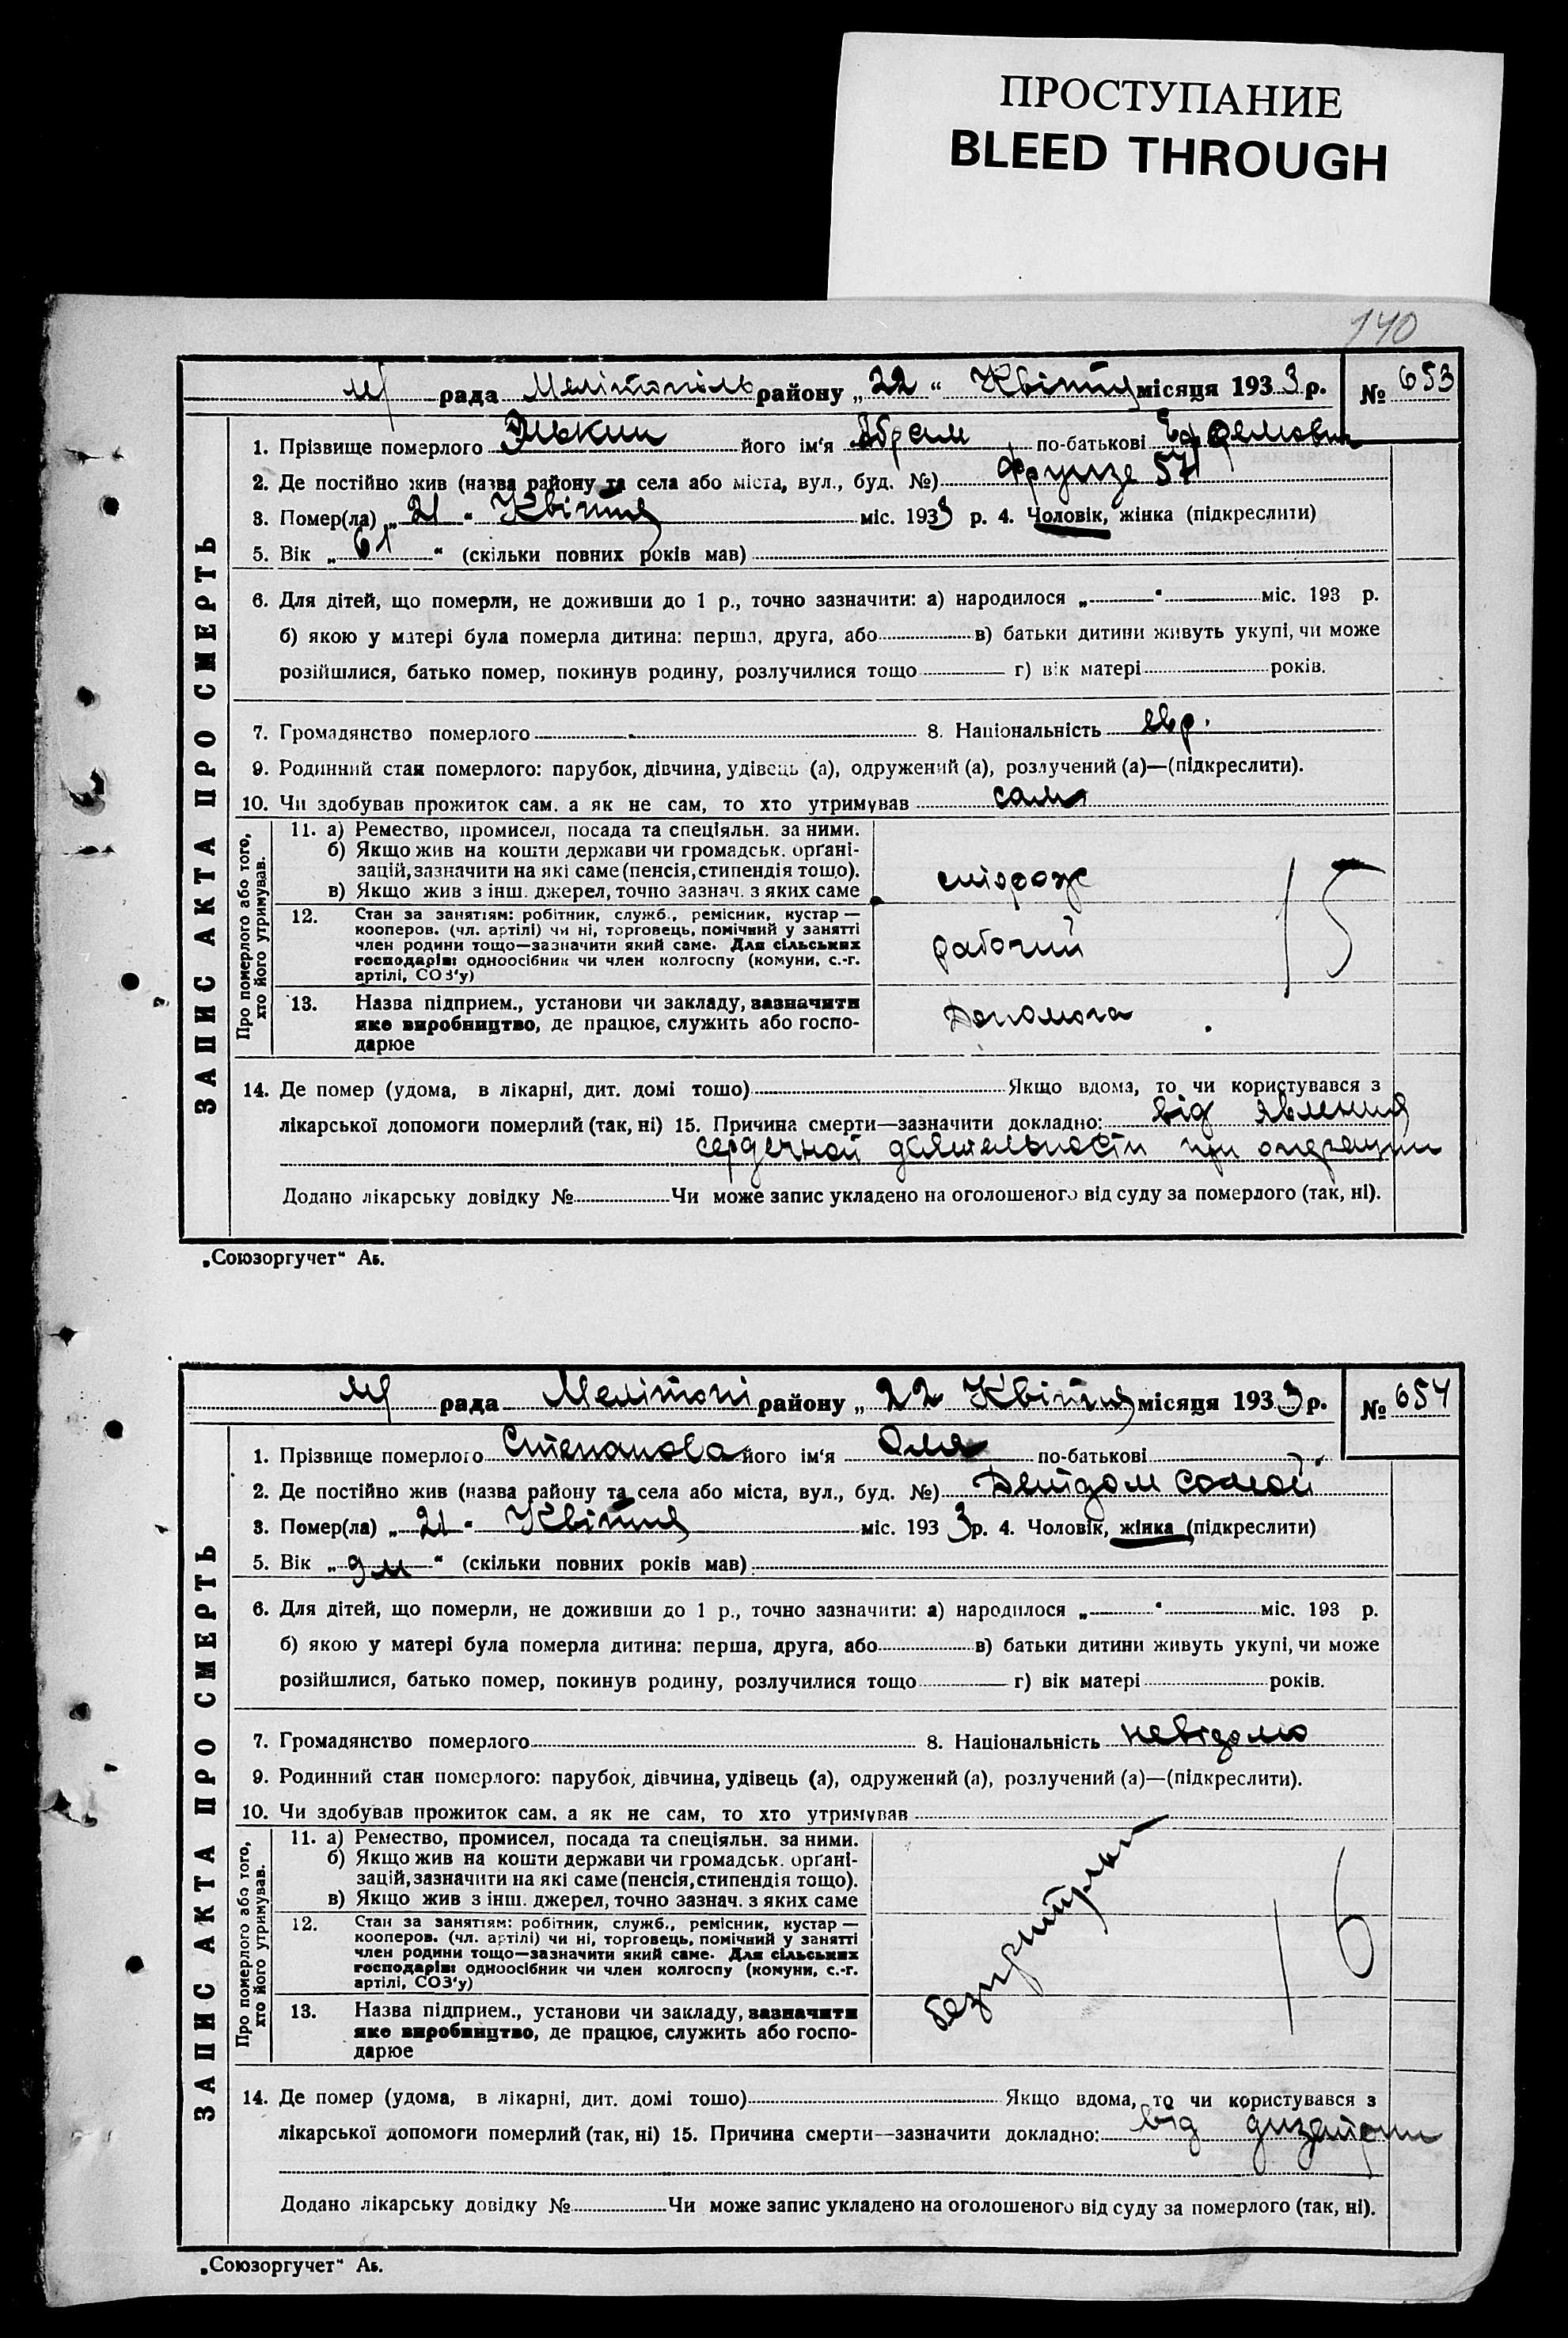 ПРОСТУПАНИЕ
BLEED THROUGH
140
рада Мелітопіль району „22“ Квітня місяця 1933 р. № 653
ЗАПИС АКТА ПРО СМЕРТЬ
1. Прізвище померлого Элькин його ім'я Абрам по-батькові
2. Де постійно жив (назва району та села або міста, вул., буд. №) Фрунзе 57
3. Помер(ла) „21“ Квітня міс. 1933 р. 4. Чоловік, жінка (підкреслити)
5. Вік „61“ (скільки повних років мав)
6. Для дітей, що померли, не доживши до 1 р., точно зазначити: а) народилося „ “ міс. 193 р.
б) якою у матері була померла дитина: перша, друга, або в) батьки дитини живуть укупі, чи може
розійшлися, батько помер, покинув родину, розлучилися тощо г) вік матері років.
7. Громадянство померлого 8. Національність евр.
9. Родинний стан померлого: парубок, дівчина, удівець (а), одружений (а), розлучений (а)—(підкреслити).
10. Чи здобував прожиток сам, а як не сам, то хто утримував сам
Про померлого або того, хто його утримував.
11. а) Ремество, промисел, посада та спеціяльн. за ними.
б) Якщо жив на кошти держави чи громадськ. орґані-
зацій, зазначити на які саме (пенсія, стипендія тощо).
в) Якщо жив з інш. джерел, точно зазнач. з яких саме
сторож
15
12. Стан за заняттям: робітник, служб., ремісник, кустар —
кооперов. (чл. артілі) чи ні, торговець, помічний у занятті
член родини тощо—зазначити який саме. Для сільських
господарів: одноосібник чи член колгоспу (комуни, с.-г.
артілі, СОЗ'у)
рабочий
13. Назва підприєм., установи чи закладу, зазначити
яке виробництво, де працює, служить або госпо-
дарює
Допомога
14. Де помер (удома, в лікарні, дит. домі тощо) Якщо вдома, то чи користувався з
лікарської допомоги померлий (так, ні) 15. Причина смерти—зазначити докладно: від явления
сердечной деятельности при операции
Додано лікарську довідку № Чи може запис укладено на оголошеного від суду за померлого (так, ні).
„Союзоргучет“ Аб.
рада Мелітопі району „22 Квітня місяця 1933 р. № 654
ЗАПИС АКТА ПРО СМЕРТЬ
1. Прізвище померлого Степанова його ім'я Оля по-батькові
2. Де постійно жив (назва району та села або міста, вул., буд. №) Детдом
3. Помер(ла) „21“ Квітня міс. 1933 р. 4. Чоловік, жінка (підкреслити)
5. Вік „9 м“ (скільки повних років мав)
6. Для дітей, що померли, не доживши до 1 р., точно зазначити: а) народилося „ “ міс. 193 р.
б) якою у матері була померла дитина: перша, друга, або в) батьки дитини живуть укупі, чи може
розійшлися, батько помер, покинув родину, розлучилися тощо г) вік матері років.
7. Громадянство померлого 8. Національність невідомо
9. Родинний стан померлого: парубок, дівчина, удівець (а), одружений (а), розлучений (а)—(підкреслити).
10. Чи здобував прожиток сам, а як не сам, то хто утримував
Про померлого або того, хто його утримував.
11. а) Ремество, промисел, посада та спеціяльн. за ними.
б) Якщо жив на кошти держави чи громадськ. орґані-
зацій, зазначити на які саме (пенсія, стипендія тощо).
в) Якщо жив з інш. джерел, точно зазнач. з яких саме
16
12. Стан за заняттям: робітник, служб., ремісник, кустар —
кооперов. (чл. артілі) чи ні, торговець, помічний у занятті
член родини тощо—зазначити який саме. Для сільських
господарів: одноосібник чи член колгоспу (комуни, с.-г.
артілі, СОЗ'у)
13. Назва підприєм., установи чи закладу, зазначити
яке виробництво, де працює, служить або госпо-
дарює
14. Де помер (удома, в лікарні, дит. домі тощо) Якщо вдома, то чи користувався з
лікарської допомоги померлий (так, ні) 15. Причина смерти—зазначити докладно: від
Додано лікарську довідку № Чи може запис укладено на оголошеного від суду за померлого (так, ні).
„Союзоргучет“ Аб.